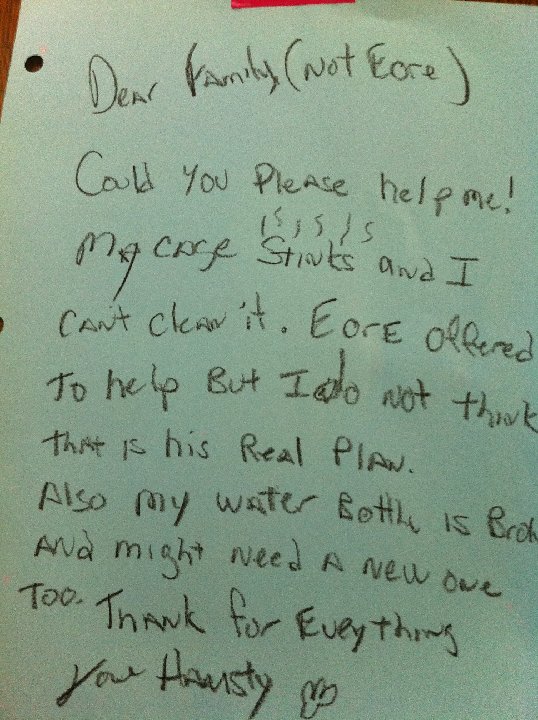 Dear Family, (Not Eore)
Could You Please help me!
My cage Stinks and I
Can't clean it. Eore offered
To help But I do Not think
that is his Real Plan.
Also my water Bottle is Brok
And might Need A New one
Too. Thank for Eveything
your Hamsty